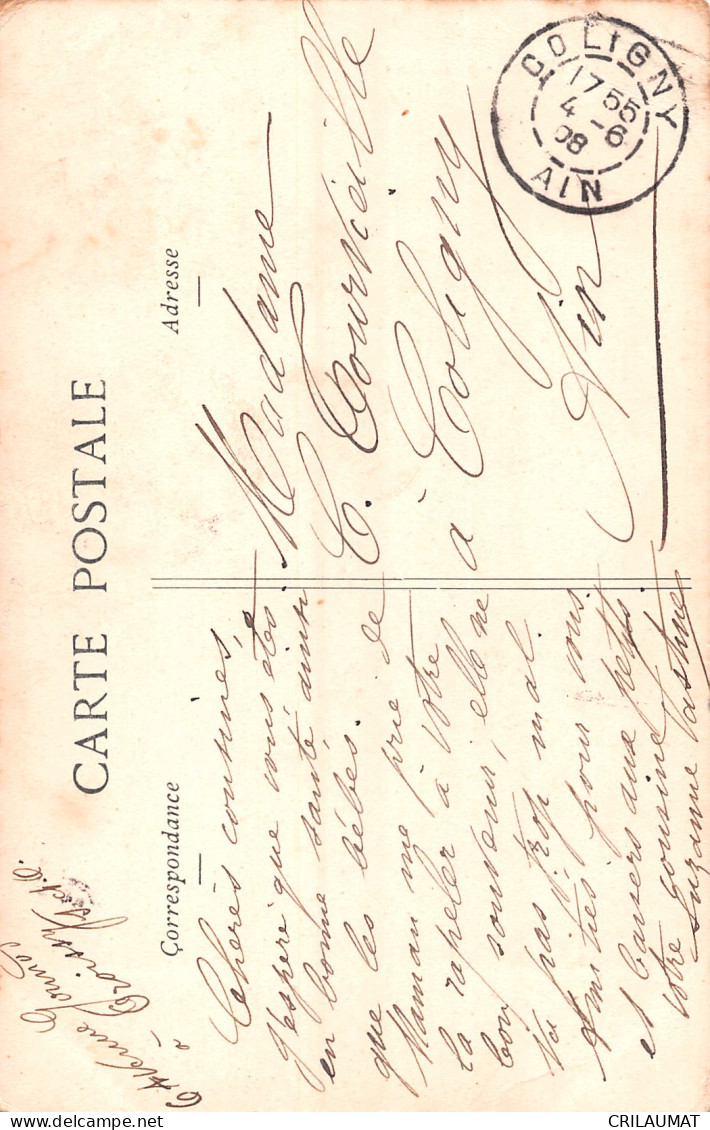 CARTE POSTALE
Correspondance
Adresse
6 Avenue
à Croissy
S. et O.
Chères cousines,
J'espère que vous êtes
en bonne santé ainsi
que les bébés.
Maman me prie de
la rapeler à votre
bon souvenir, elle ne
va pas trop mal.
Amitiés pour vous
et baisers aux petits.
Votre cousine
Suzanne
Madame
C. Tourveille
à Coligny
Ain
COLIGNY
17 55
4 -6
08
AIN
delcampe.net
CRILAUMAT